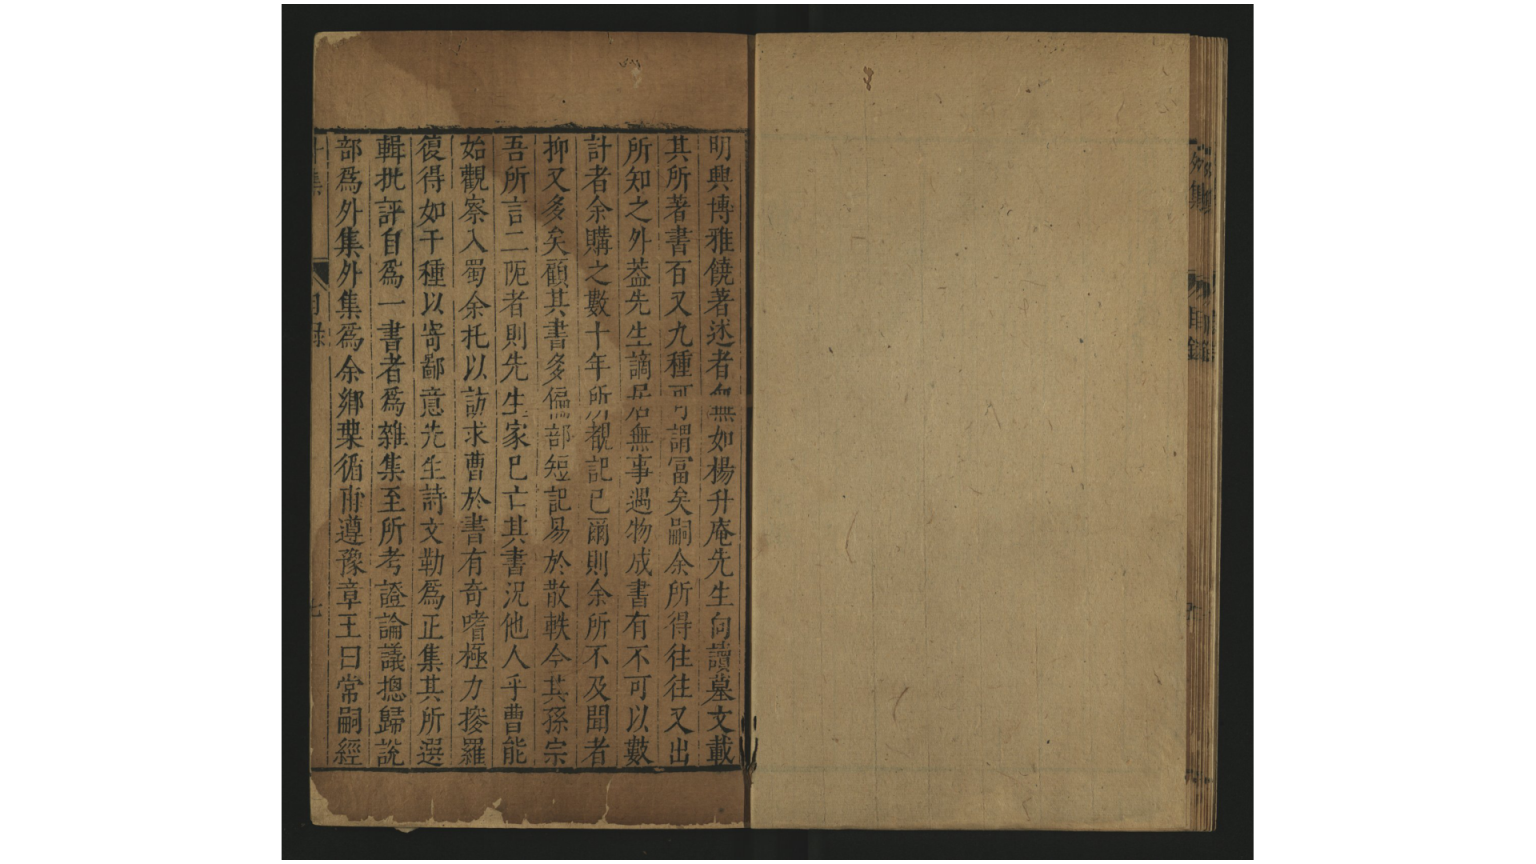 明興博雅饒著述者無如楊升庵先生向讀墓文載
其所著書百又九種可謂富矣嗣余所得往往又出
所知之外葢先生謫居無事遇物成書有不可以數
計者余購之數十年所覩記已爾則余所不及聞者
抑又多矣顧其書多偏部短記易於散軼今其孫宗
吾所言二阨者則先生家已亡其書況他人乎曹能
始觀察入蜀余托以訪求曹於書有奇嗜極力搜羅
復得如干種以寄鄙意先生詩文勒爲正集其所選
輯批評自爲一書者爲雜集至所考證論議摠歸說
部爲外集外集爲余鄉
遵豫章王曰常嗣經
集
目録
七
外集
目録